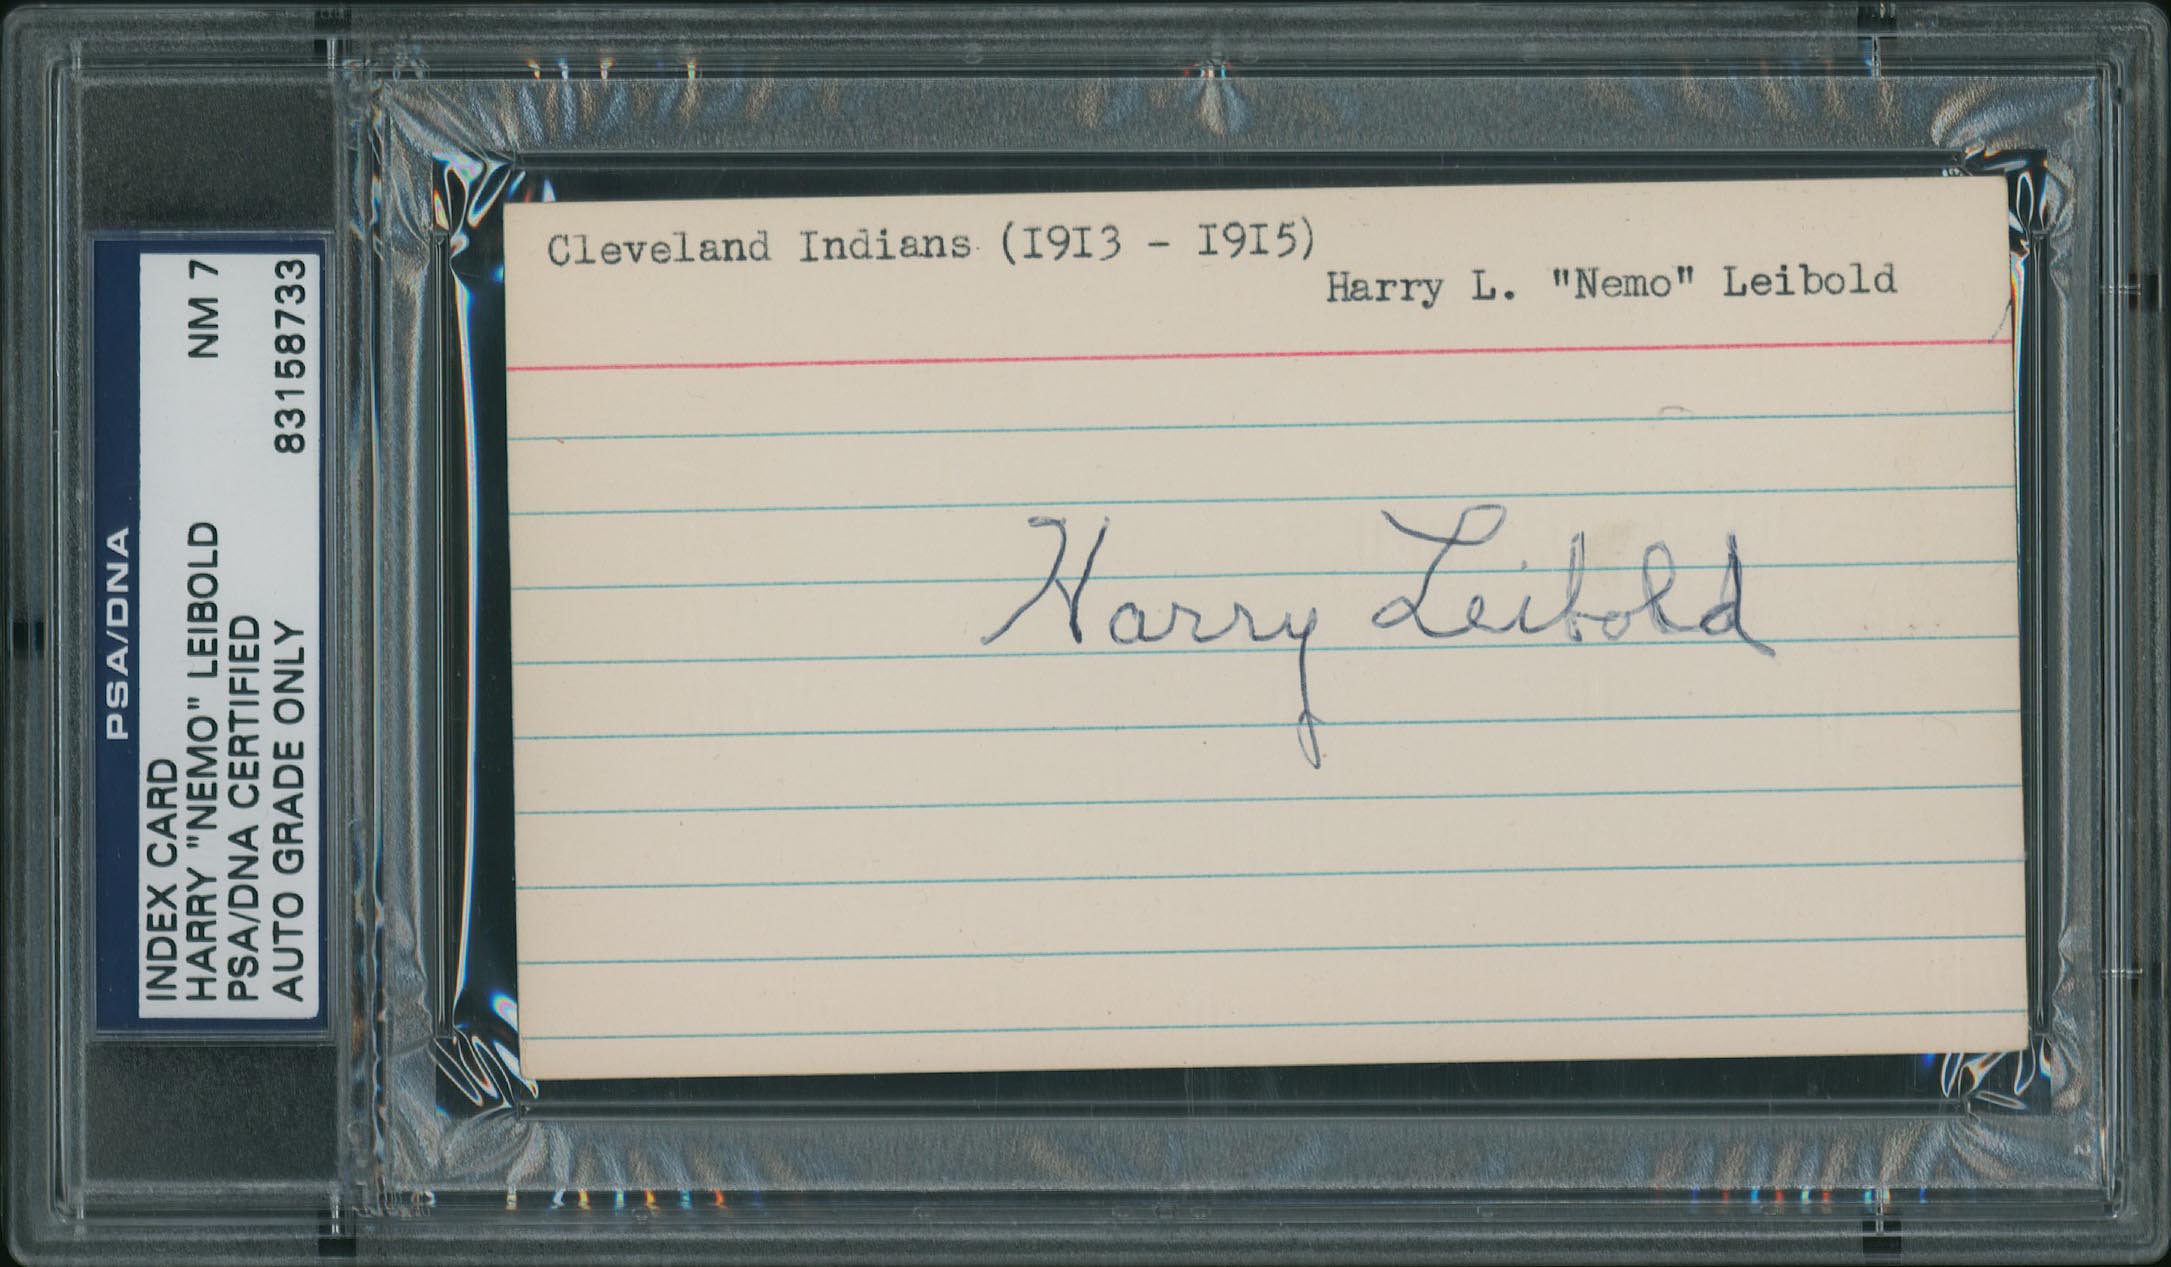 PSA/DNA
INDEX CARD
HARRY "NEMO" LEIBOLD NM 7
PSA/DNA CERTIFIED
AUTO GRADE ONLY 83158733
Cleveland Indians (I9I3 - I9I5)
Harry L. "Nemo" Leibold
Harry Leibold